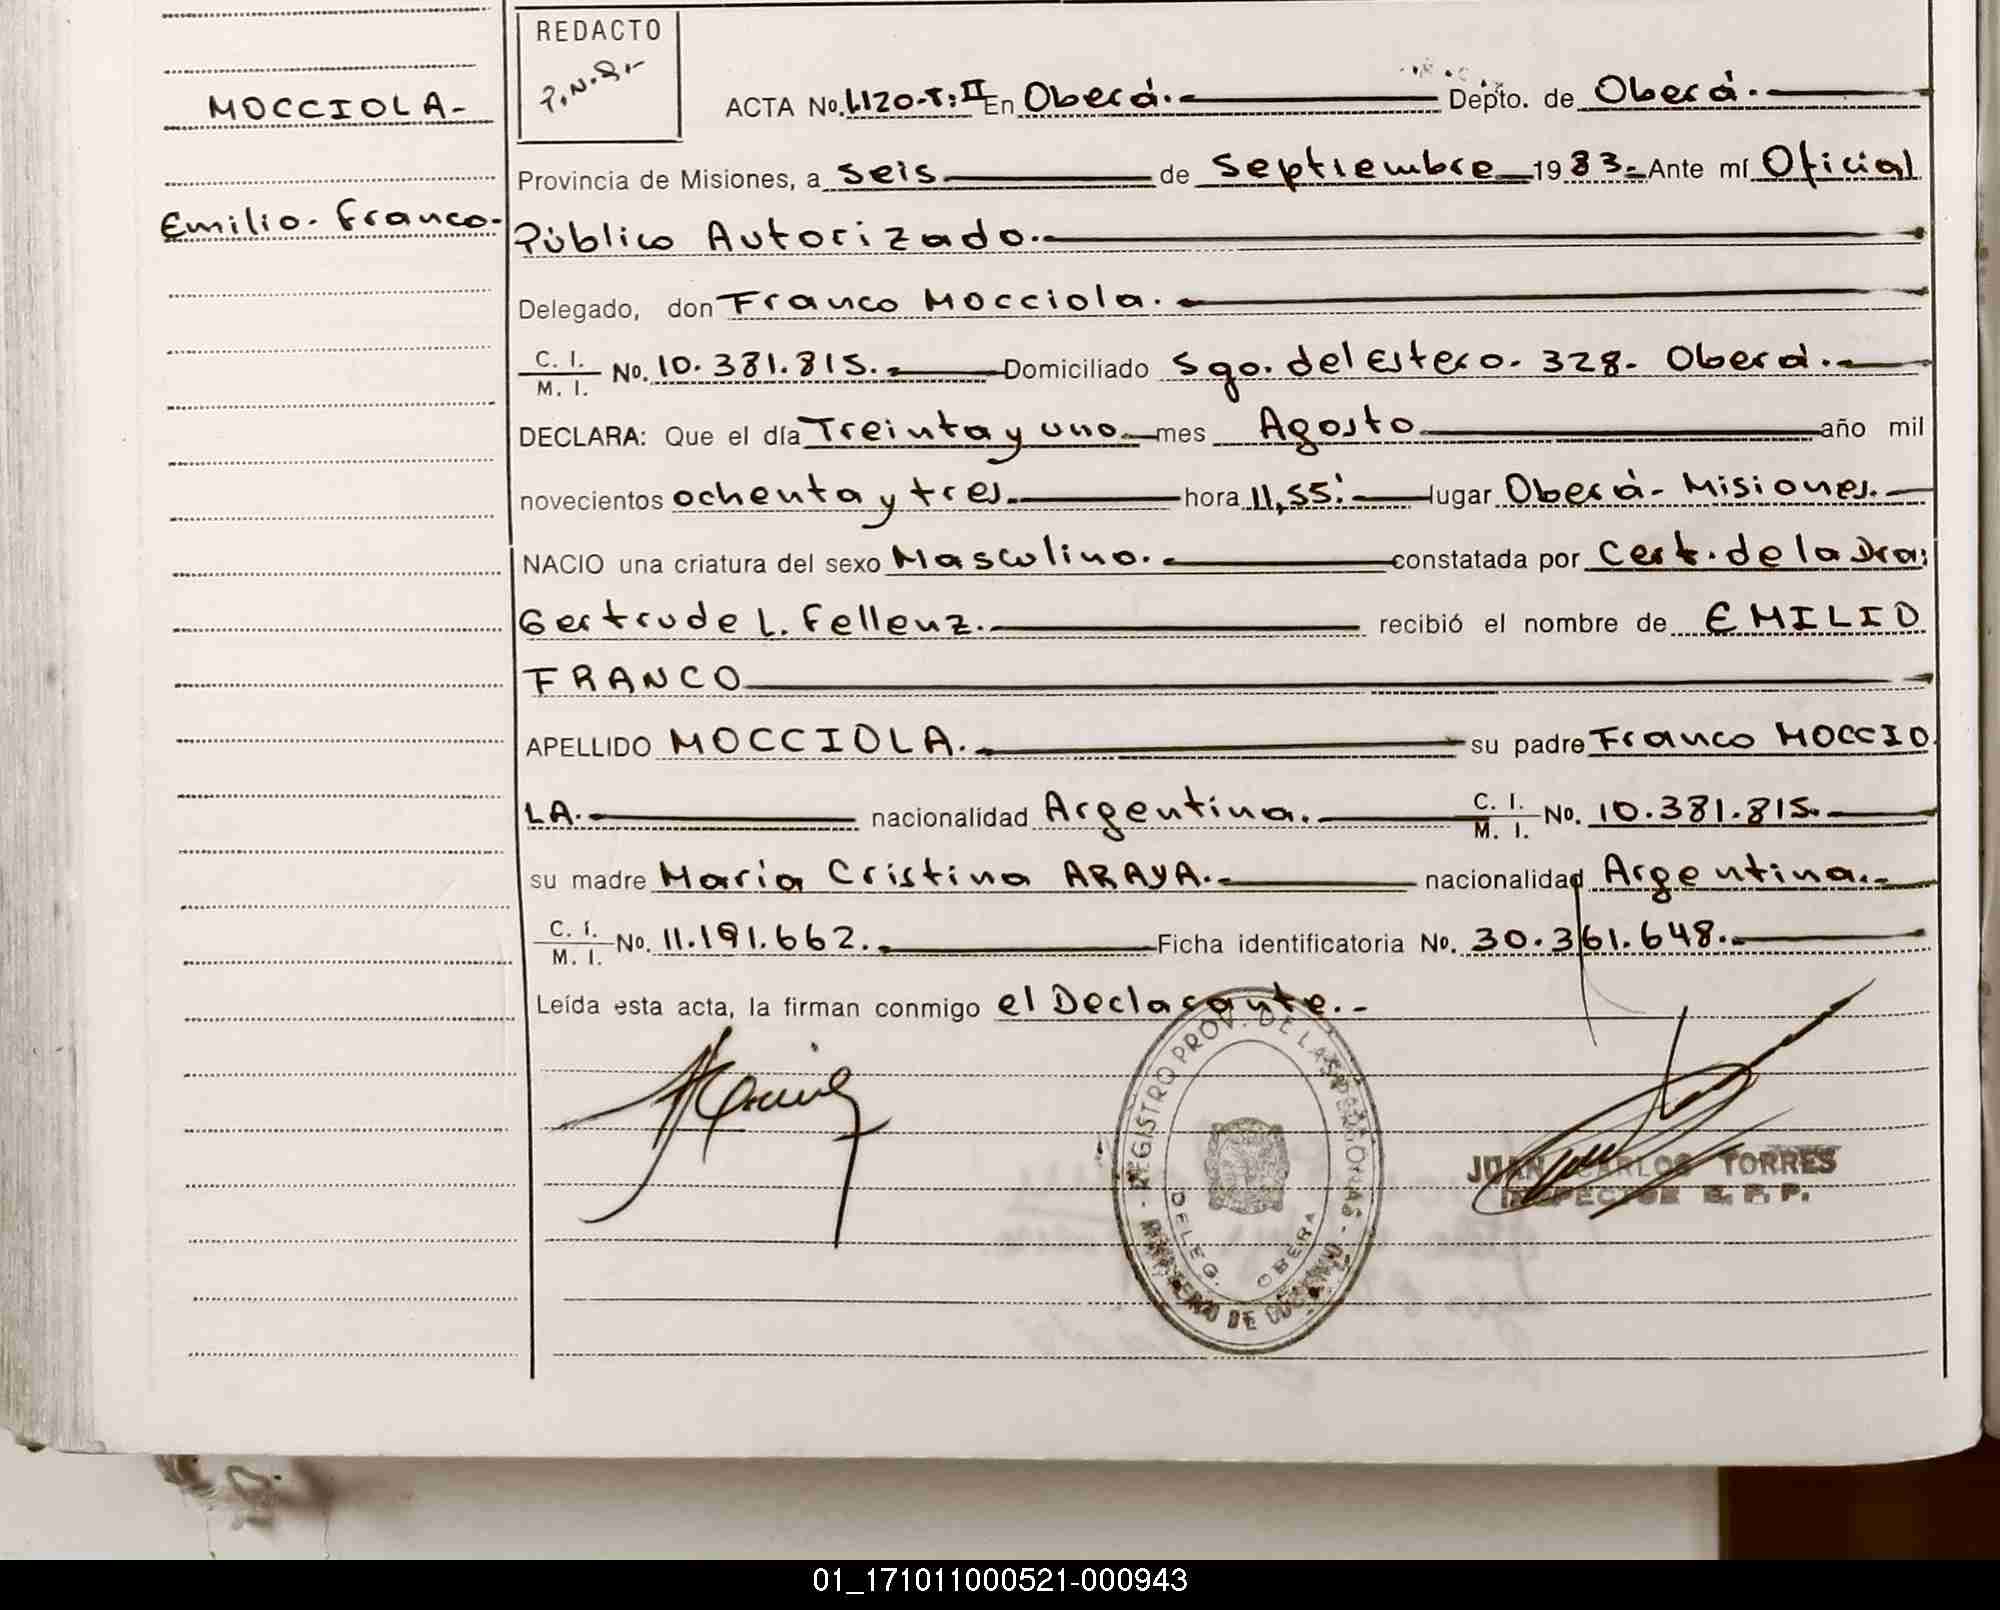 REDACTO
P.N.S.-
MOCCIOLA-
Emilio. Franco.
ACTA No. 1120-T:II En Oberá. Depto. de Oberá.
Provincia de Misiones, a Seis de Septiembre 1983.- Ante mí Oficial
Público Autorizado.
Delegado, don Franco Mocciola.
C. I. / M. I. No. 10.381.815. Domiciliado Sgo. del Estero. 328- Oberá.
DECLARA: Que el día Treinta y uno mes Agosto año mil
novecientos ochenta y tres. hora 11,55' lugar Oberá- Misiones.
NACIO una criatura del sexo Masculino. constatada por Cert. de la Dra:
Gertrude L. Fellenz. recibió el nombre de EMILIO
FRANCO
APELLIDO MOCCIOLA. su padre Franco MOCCIO
LA. nacionalidad Argentina. C. I. / M. I. No. 10.381.815.
su madre María Cristina ARAYA. nacionalidad Argentina.
C. I. / M. I. No. 11.191.662. Ficha identificatoria No. 30.361.648.
Leída esta acta, la firman conmigo el Declarante.-
REGISTRO PROV. DE LAS PERSONAS
DELEG. OBERA
MINISTERIO DE GOBIERNO
JUAN CARLOS TORRES
INSPECTOR R. P. P.
01_171011000521-000943